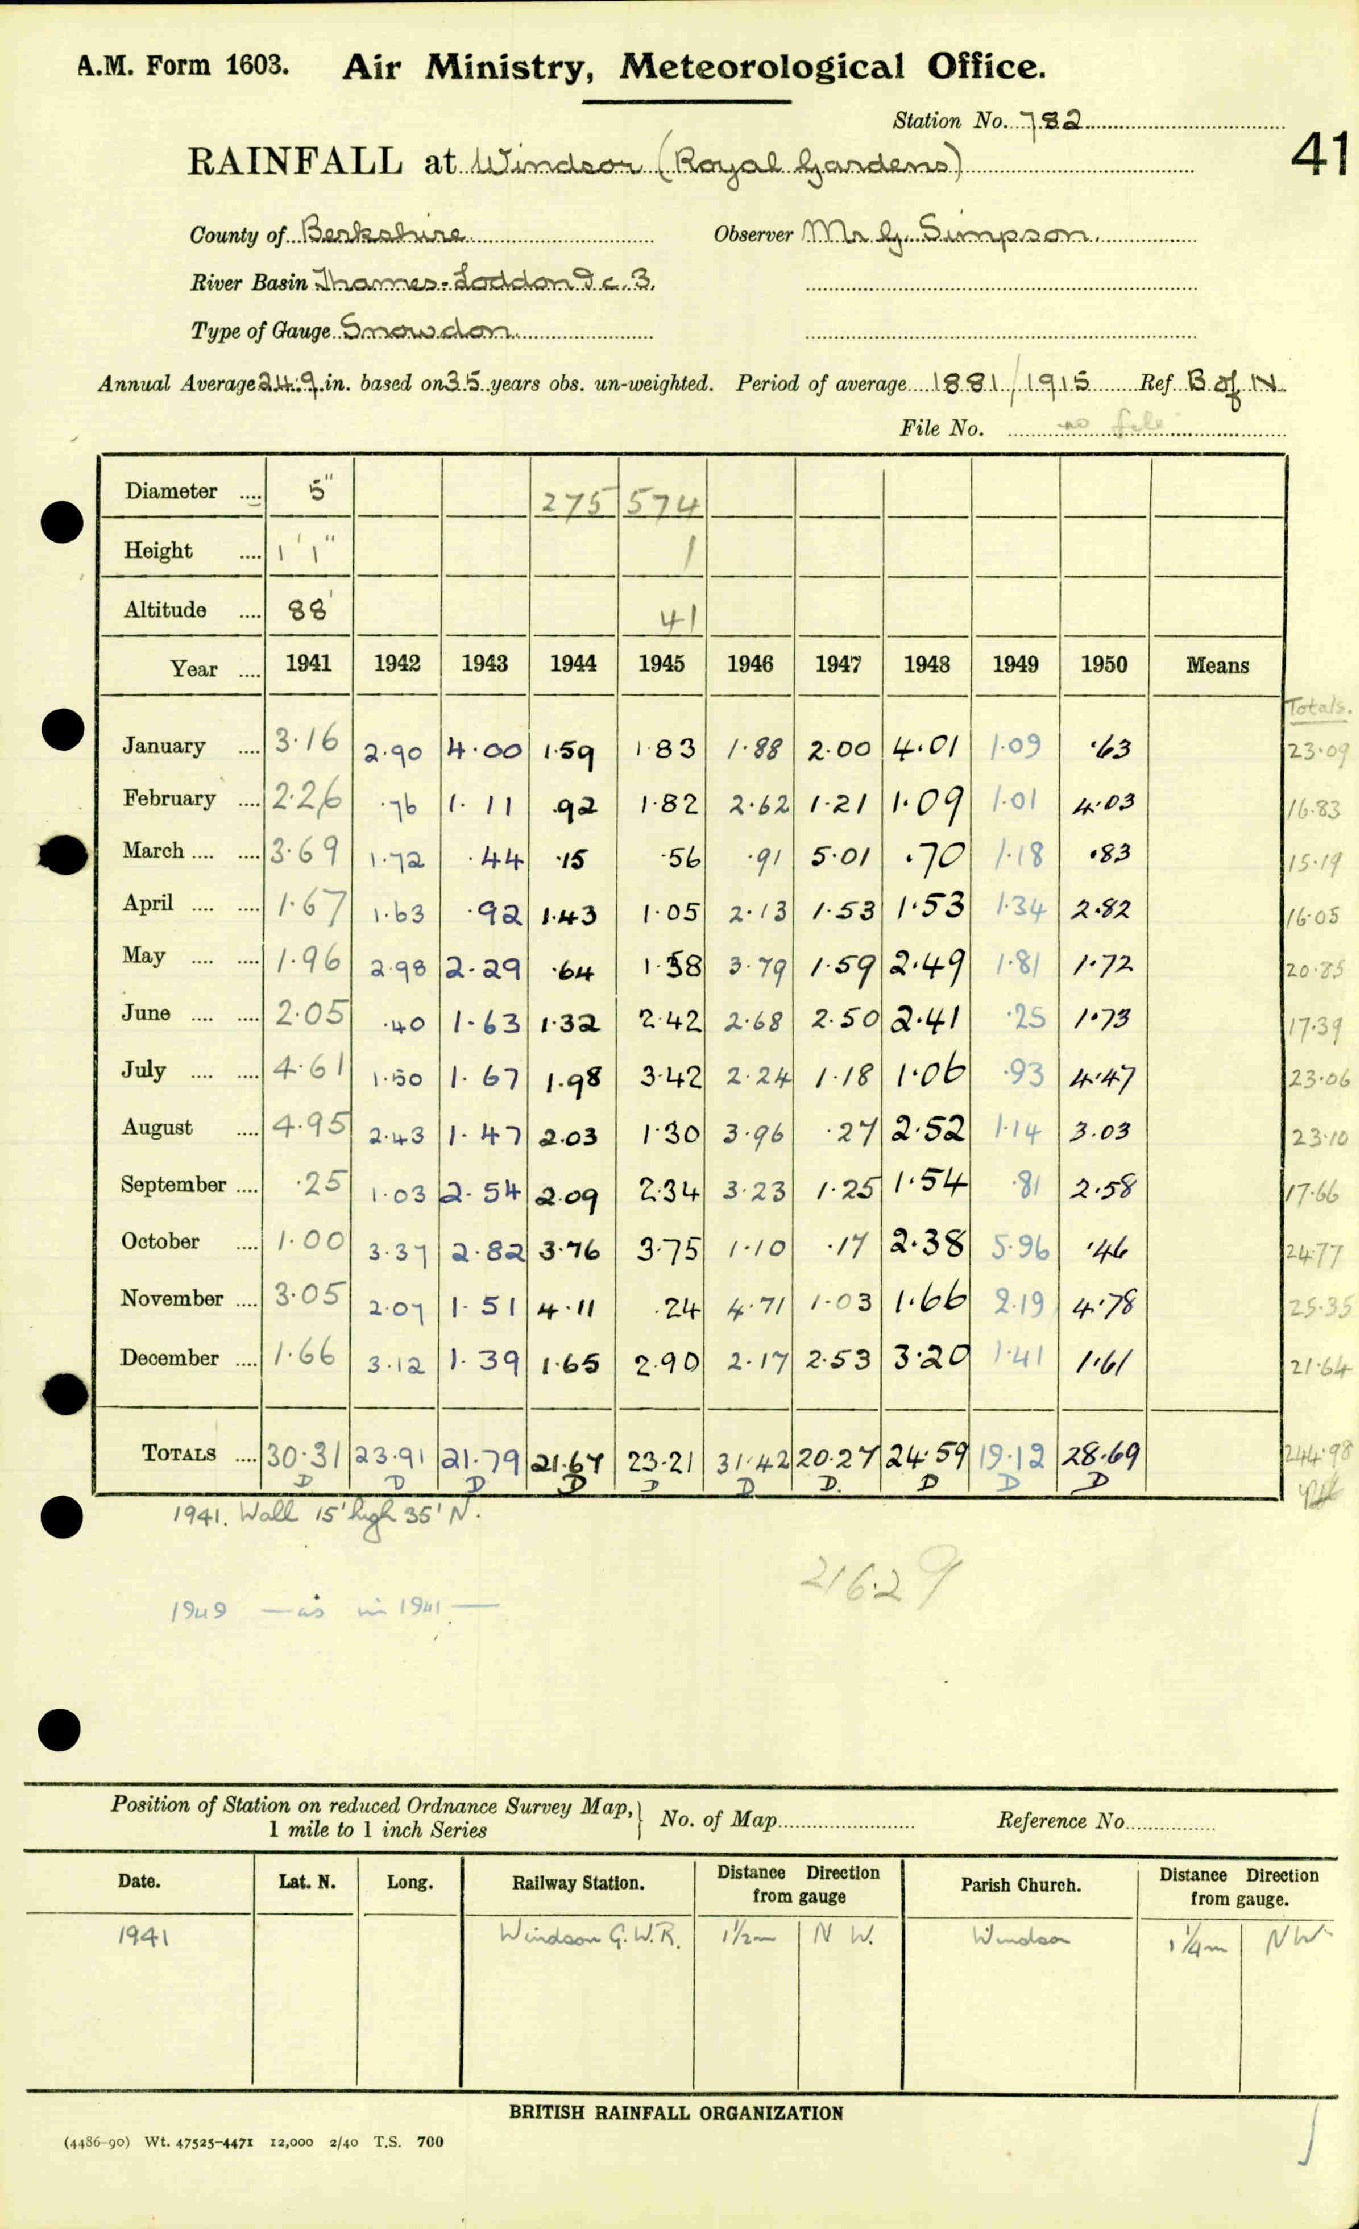 A.M. Form 1603. Air Ministry, Meteorological Office.
Station No. 782
41
RAINFALL at Windsor (Royal Gardens)
County of Berkshire Observer Mr G. Simpson.
River Basin Thames-Loddon &c. 3.
Type of Gauge Snowdon
Annual Average 24.9 in. based on 35 years obs. un-weighted. Period of average 1881/1915 Ref B of N
File No. no file
Diameter .... 5" 275 574
Height .... 1' 1" 1
Altitude .... 88' 41
Year .... 1941 1942 1943 1944 1945 1946 1947 1948 1949 1950 Means
Totals.
January .... 3.16 2.90 4.00 1.59 1.83 1.88 2.00 4.01 1.09 .63 23.09
February .... 2.26 .76 1.11 .92 1.82 2.62 1.21 1.09 1.01 4.03 16.83
March .... .... 3.69 1.72 .44 .15 .56 .91 5.01 .70 1.18 .83 15.19
April .... .... 1.67 1.63 .92 1.43 1.05 2.13 1.53 1.53 1.34 2.82 16.05
May .... .... 1.96 2.98 2.29 .64 1.58 3.79 1.59 2.49 1.81 1.72 20.85
June .... .... 2.05 .40 1.63 1.32 2.42 2.68 2.50 2.41 .25 1.73 17.39
July .... .... 4.61 1.50 1.67 1.98 3.42 2.24 1.18 1.06 .93 4.47 23.06
August .... 4.95 2.43 1.47 2.03 1.30 3.96 .27 2.52 1.14 3.03 23.10
September .... .25 1.03 2.54 2.09 2.34 3.23 1.25 1.54 .81 2.58 17.66
October .... 1.00 3.37 2.82 3.76 3.75 1.10 .17 2.38 5.96 .46 24.77
November .... 3.05 2.07 1.51 4.11 .24 4.71 1.03 1.66 2.19 4.78 25.35
December .... 1.66 3.12 1.39 1.65 2.90 2.17 2.53 3.20 1.41 1.61 21.64
TOTALS .... 30.31 23.91 21.79 21.67 23.21 31.42 20.27 24.59 19.12 28.69 244.98
D D D D D D D. D D D
1941. Wall 15' high 35' N.
216.29
1949 — as in 1941 —
Position of Station on reduced Ordnance Survey Map, } No. of Map Reference No.
1 mile to 1 inch Series
Date. Lat. N. Long. Railway Station. Distance from gauge Direction Parish Church. Distance from gauge. Direction
1941 Windsor G.W.R. 1½m N W. Windsor 1¼m NW
BRITISH RAINFALL ORGANIZATION
(4486-90) Wt. 47525-4471 12,000 2/40 T.S. 700